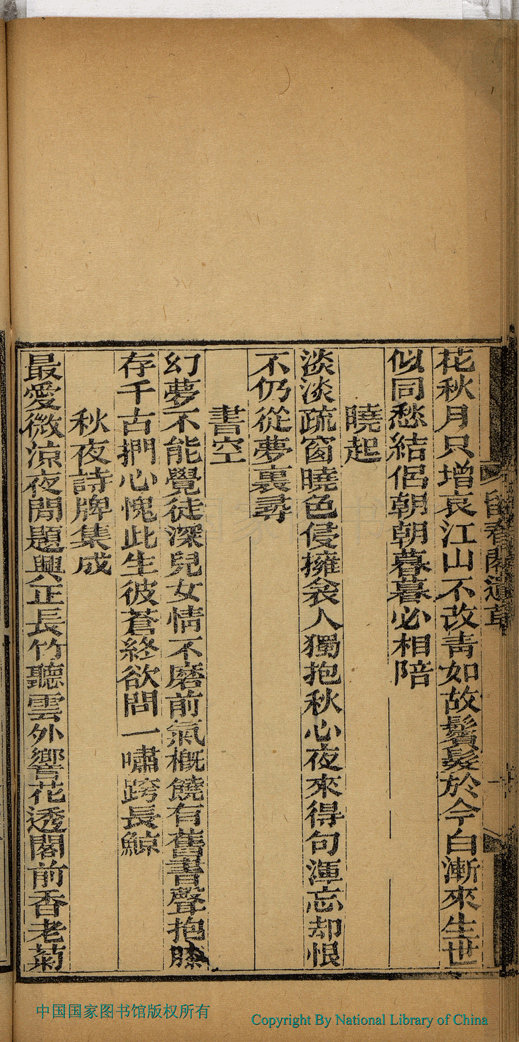 留春閣遺草
花秋月只增哀江山不改青如故鬢髮於今白漸來生世
似同愁結侶朝朝暮暮必相陪
曉起
淡淡疏窗曉色侵擁衾人獨抱秋心夜來得句渾忘却恨
不仍從夢裏尋
書空
幻夢不能覺徒深兒女情不磨前氣概饒有舊書聲抱膝
存千古捫心愧此生彼蒼終欲問一嘯跨長鯨
秋夜詩牌集成
最愛微涼夜閒題興正長竹聽雲外響花透閣前香老菊
中国国家图书馆版权所有
Copyright By National Library of China